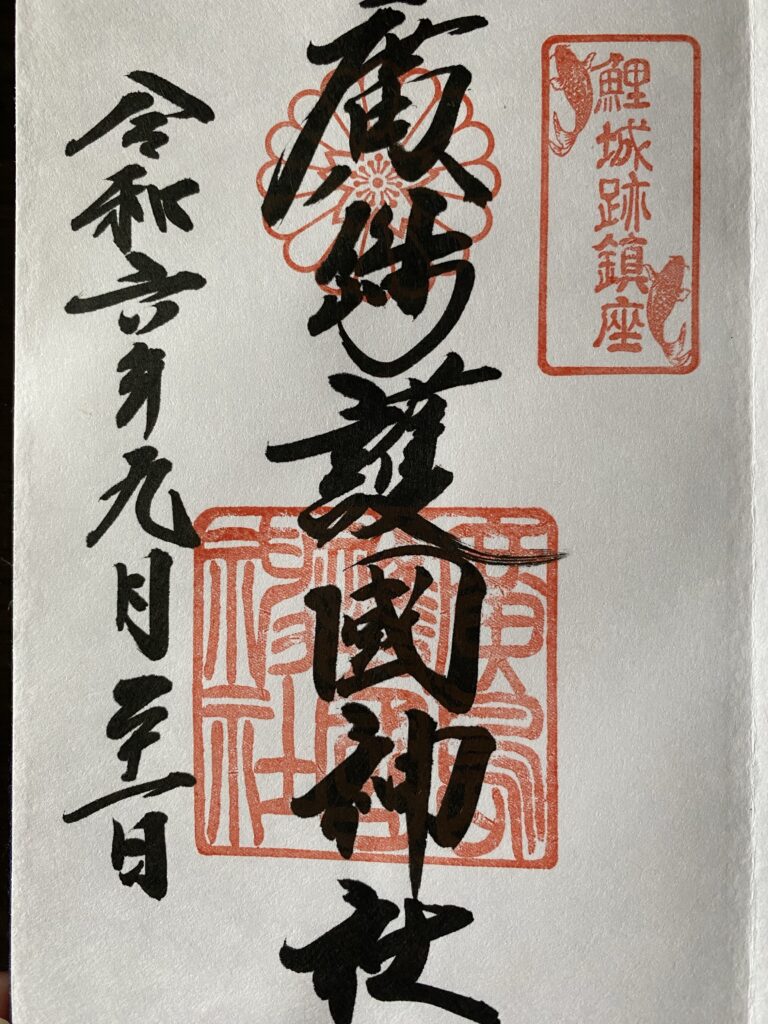 鯉城跡鎮座
廣島護國神社
廣島
護國
神社
令和六年九月二十一日